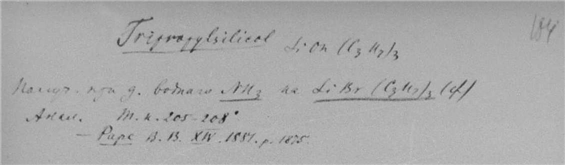 184
Tripropylsilicol SiOH (C3H7)3
Получ. при д. водного NH3 на SiBr (C3H7)3 (cf)
Анал. Т. к. 205-208°
— Pape B. B. XIV. 1881. p. 1875.